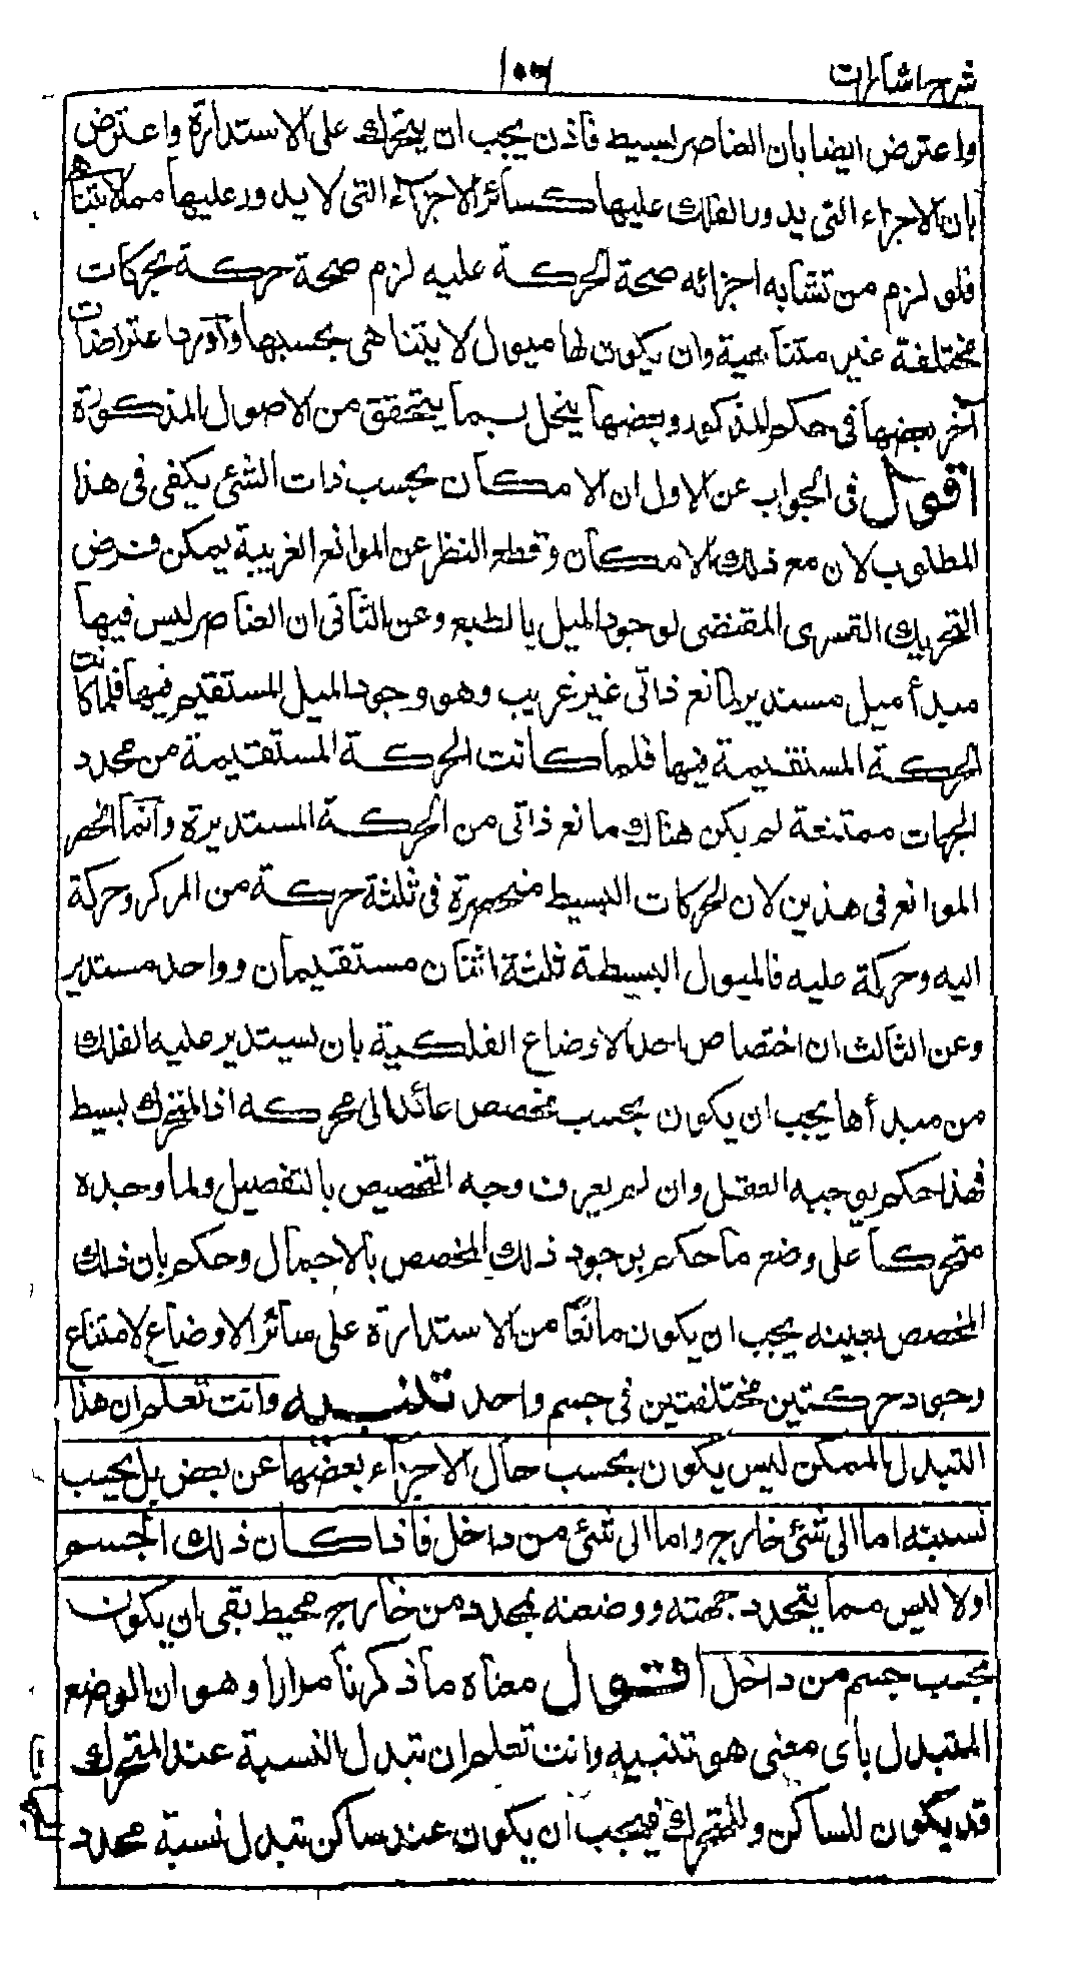 شرح اشارات
واعترض ايضا بان العناصر بسيط فاذن يجب ان يتحرك على الاستدارة واعترض
بان الاجزاء التى يدور الفلك عليها كسائر الاجزاء التى لا يدور عليها مما لا يتناهى
فلو لزم من تشابه اجزائه صحة الحركة عليه لزم صحة حركة بجركات
مختلفة غير متناهية وان يكون لها ميول لا يتناهى بحسبها واورد اعتراضات
آخر بعضها فى حكم المذكور وبعضها ينحل بما يتحقق من الاصول المذكورة
اقول فى الجواب عن الاول ان الامكان بحسب ذات الشئ يكفى فى هذا
المطلوب لان مع ذلك الامكان وقطع النظر عن الموانع الغريبة يمكن فرض
التحريك القسرى المقتضى لوجود الميل بالطبع وعن الثانى ان العناصر ليس فيها
مبدأ ميل مستدير لمانع ذاتى غير غريب وهو وجود الميل المستقيم فيها فلما كانت
الحركة المستقيمة فيها فلما كانت الحركة المستقيمة من محدد
الجهات ممتنعة لم يكن هناك مانع ذاتى من الحركة المستديرة وانما انحصر
الموانع فى هذين لان الحركات البسيط منحصرة فى ثلثة حركة من المركز وحركة
اليه وحركة عليه فالميول البسيطة ثلثة اثنان مستقيمان وواحد مستدير
وعن الثالث ان اختصاص احد الاوضاع الفلكية بان يستدير عليه الفلك
من مبدأها يجب ان يكون بحسب مخصص عائد الى محركه اذ المتحرك بسيط
فهذا حكم يوجبه العقل وان لم يعرف وجه التخصيص بالتفصيل ولما وجده
متحركا على وضع ما حكم بوجود ذلك المخصص بالاجمال وحكم بان ذلك
المخصص بعينه يجب ان يكون مانعا من الاستدارة على سائر الاوضاع لامتناع
وجود حركتين مختلفتين فى جسم واحد تنبيه وانت تعلم ان هذا
التبدل الممكن ليس يكون بحسب حال الاجزاء بعضها عن بعض بل بحسب
نسبته اما الى شئ خارج واما الى شئ من داخل فاذا كان ذلك الجسم
اولا ليس مما يتحدد جهته ووضعه بمحدد من خارج محيط بقى ان يكون
بحسب جسم من داخل اقول معناه ما ذكرنا مرارا وهو ان الوضع
المتبدل باى معنى هو تنبيه وانت تعلم ان تبدل النسبة عند المتحرك
قد يكون للساكن وللمتحرك فيجب ان يكون عند ساكن تبدل نسبة محدد